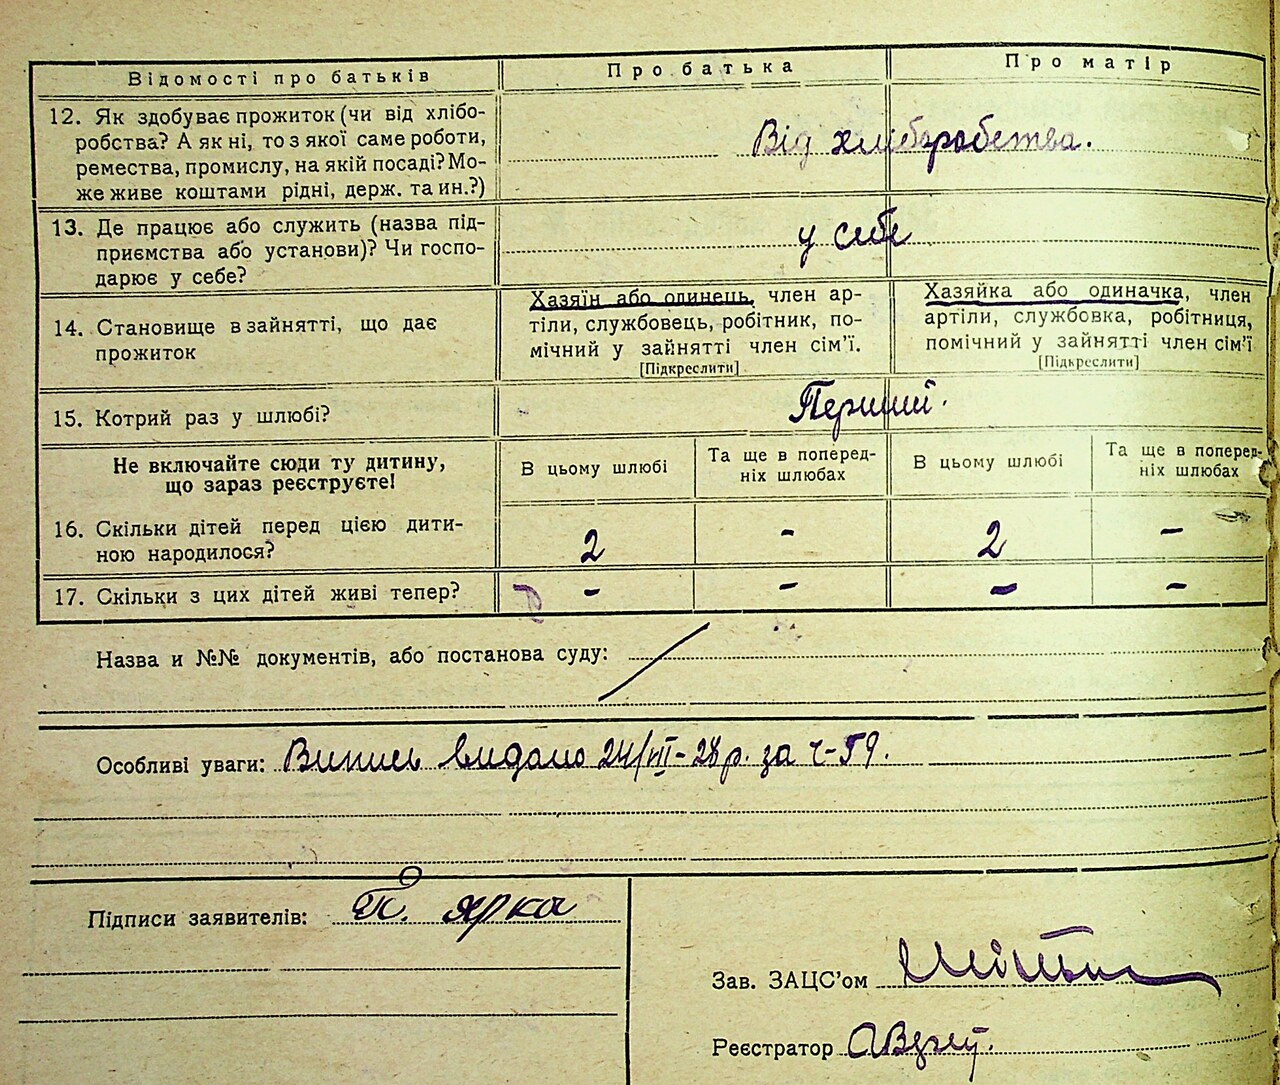 Відомості про батьків
Про батька
Про матір
12. Як здобуває прожиток (чи від хлібо-
робства? А як ні, то з якої саме роботи,
ремества, промислу, на якій посаді? Мо-
же живе коштами рідні, держ. та ин.?)
Від хліборобства.
13. Де працює або служить (назва під-
приємства або установи)? Чи госпо-
дарює у себе?
у себе
14. Становище в зайнятті, що дає
прожиток
Хазяїн або одинець, член ар-
тіли, службовець, робітник, по-
мічний у зайнятті член сім'ї.
[Підкреслити]
Хазяйка або одиначка, член
артіли, службовка, робітниця,
помічний у зайнятті член сім'ї
[Підкреслити]
15. Котрий раз у шлюбі?
Перший.
Не включайте сюди ту дитину,
що зараз реєструєте!
В цьому шлюбі
Та ще в поперед-
ніх шлюбах
В цьому шлюбі
Та ще в поперед-
ніх шлюбах
16. Скільки дітей перед цією дити-
ною народилося?
2 - 2 -
17. Скільки з цих дітей живі тепер?
- - - -
Назва и №№ документів, або постанова суду:
Особливі уваги: Випись видано 24/VII-28р. за ч-59.
Підписи заявителів: Ярка
Зав. ЗАЦС'ом
Реєстратор